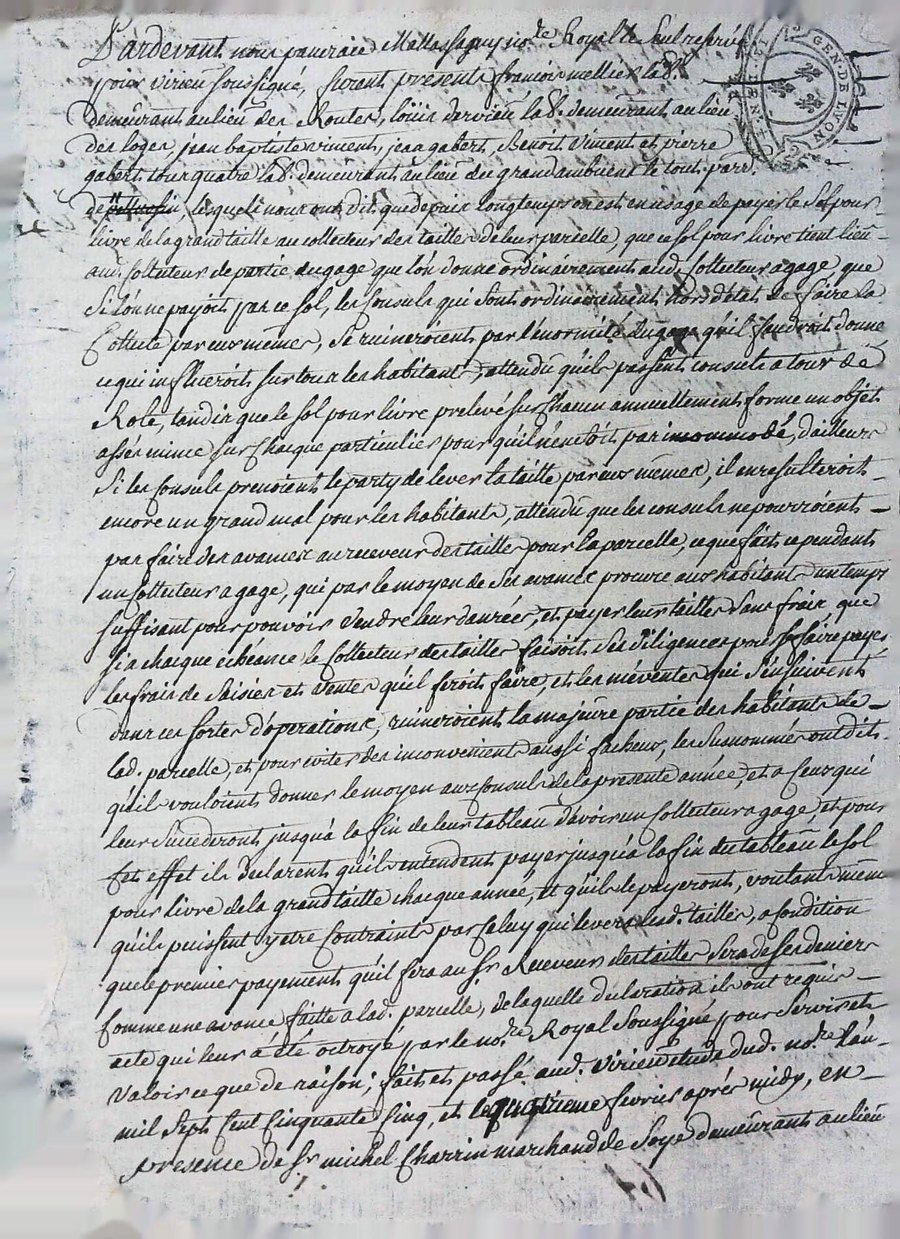 Pardevant nous pancraie Mellassagny no.re Royal le seul reservé
pour virieu soussigné, furent présents francois mellier la8r
demeûrant au lieu des Routes, loüis dervieu la8r. demeurant au lieu
des loges, jean baptiste viment, jean gabert, Benoit viment et pierre
gabert tous quatre la8rs demeurant au lieu du grand ambuent le tout par.
de, lesquels nous ont dit que depuis longtemps on est en usage de payer le sol pour
livre de la grand taille au collecteur des tailles de leur parcelle, que ce sol pour livre tient lieu
aud. Collecteur de partie du gage que l'on donne ordinairement aud. Collecteur a gage, que
si l'on ne payoit pas ce sol, les Consuls qui sont ordinairement hors d'etat de faire la
Collecte par eux mêmes, se ruineroient par l'énormité du gage qu'il faudroit donne
ce qui influeroit sur tous les habitants, attendû qu'ils passent consuls a tour de
Role, tandis que le sol pour livre prelevé sur chacun annuellement forme un objet
assés mince sur Chaque particulier pour qu'il n'en soit pas incommodé, d'ailleurs
si les Consuls prenoient le party de lever la taille par eux mêmes, il en resulteroit
encore un grand mal pour les habitants, attendû que les consuls ne pourroient
pas faire des avances au receveur des tailles pour la parcelle, ce que fait cependant
un Collecteur a gage, qui par le moyen de ses avances procure aux habitants un temps
suffisant pour pouvoir vendre leur danrées, et payer leur tailles sans fraix, que
si a chaque echéance le Collecteur des tailles faisoit ses diligences pour se faire payer
les frais de saisies et ventes qu'il feroit faire, et les méventes qui s'ensuivent
dans ces sortes d'operations, ruineroient la majeure partie des habitants de
lad. parcelle, et pour eviter des inconvenients aussi facheux, les susnommés ont dit
qu'ils vouloient donner le moyen aux consuls de la presente année, et a Ceux qui
leur succederont jusqu'à la fin de leur tableau d'avoir un Collecteur a gage, et pour
Cet effet ils declarent qu'ils entendent payer jusqu'a la fin du tableau le sol
pour livre de la grand taille chaque année, et qu'ils le payeront, voulant même
qu'ils puissent y etre Contraints par Celuy qui levera lad. taille, a Condition
que le premier payement qu'il fera au Sr Receveur des tailles sera de ses deniers
Comme une avance faitte a lad. parcelle, de laquelle declaration ils ont requis
acte qui leur á été octroyé par le no.re Royal soussigné pour servir et
valoir ce que de raison; fait et passé aud. virieu etude dud. no.re l'an
mil sept Cent Cinquante Cinq, et le fevrier aprés midy, en
presence de Sr michel Charrin marchand de soye demeûrant au lieu
GEN. DE LYON